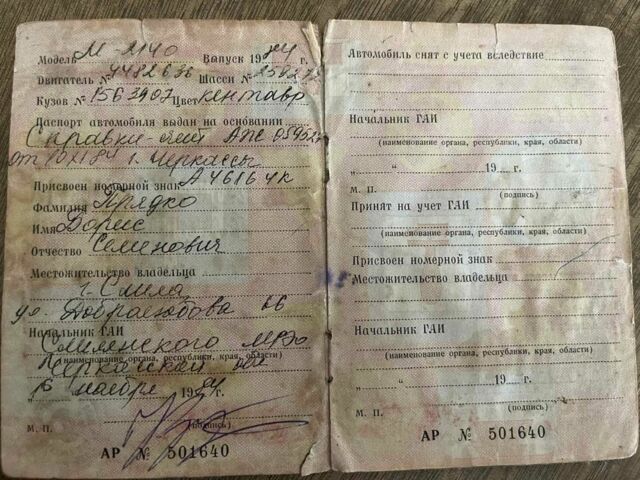 Модель М-2140 Выпуск 1984 г.
Двигатель № 4482636 Шасси №
Кузов № 1563407 Цвет кентавр
Паспорт автомобиля выдан на основании
Справки-счёт
г. Черкассы
Присвоен номерной знак А 4616 ЧК
Фамилия Прядко
Имя Борис
Отчество Семенович
Местожительство владельца
г. Смела
ул. Добролюбова 66
Начальник ГАИ
Смелянского МРЭО
(наименование органа, республики, края, области)
Черкасской обл
„16 ноября 1984 г.
М. П. (подпись)
АР № 501640
Автомобиль снят с учета вследствие
Начальник ГАИ
(наименование органа, республики, края, области)
„ “ 19 г.
М. П. (подпись)
Принят на учет ГАИ
(наименование органа, республики, края, области)
Присвоен номерной знак
Местожительство владельца
Начальник ГАИ
(наименование органа, республики, края, области)
„ “ 19 г.
М. П. (подпись)
АР № 501640